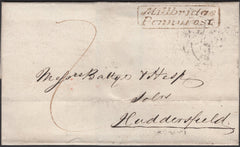 Millbridge
Penny Post
2
Messrs Battye & Hesp
Solrs
Huddersfield